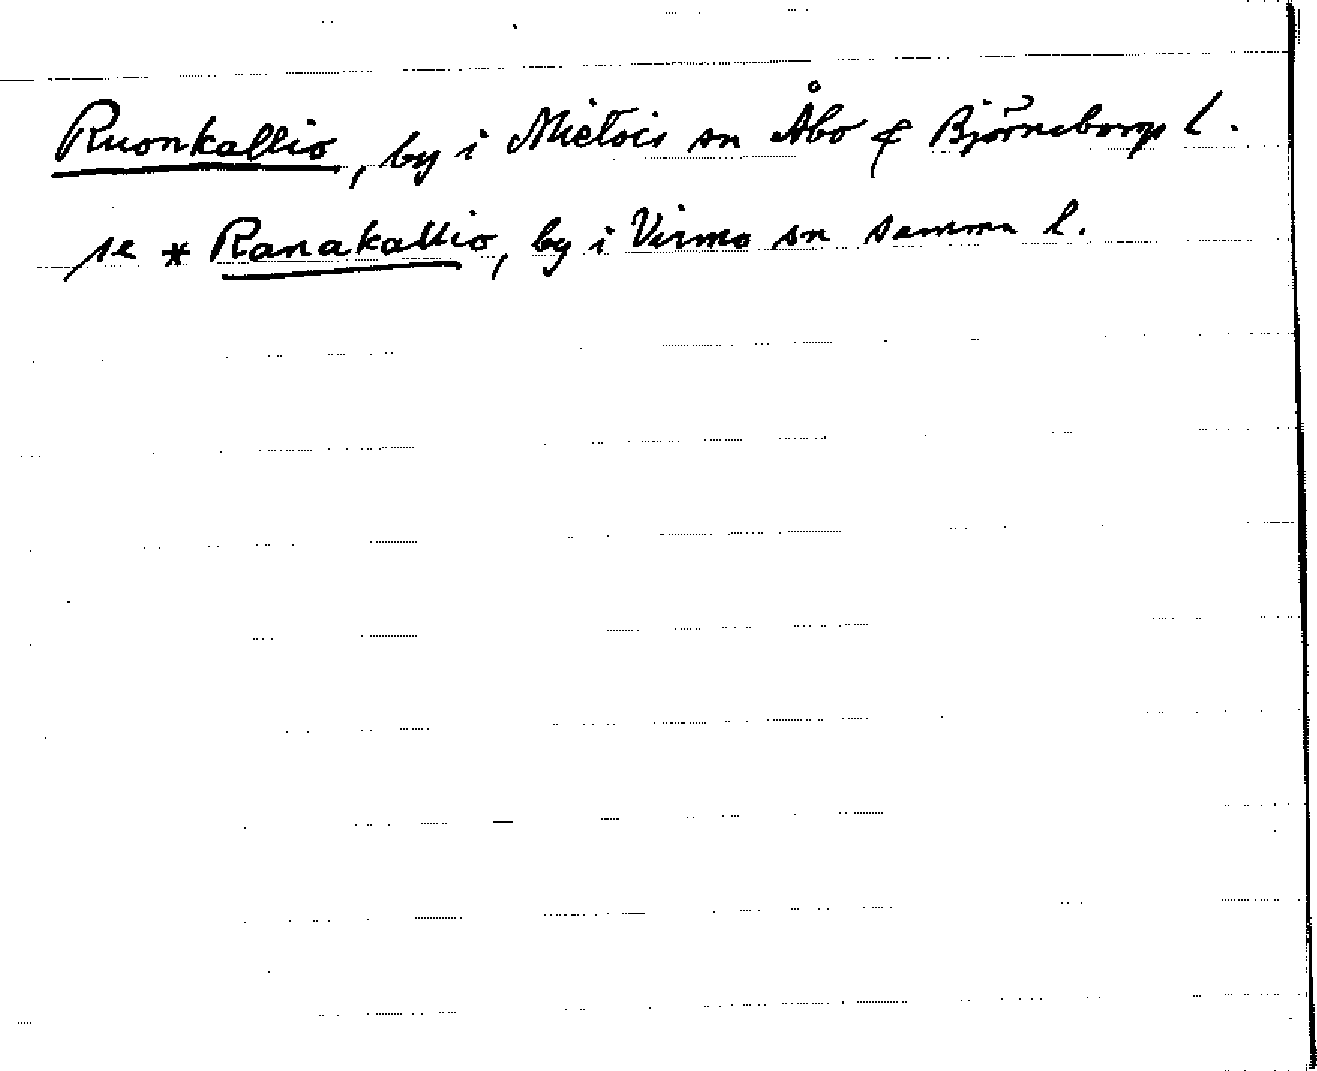 Ruonkallio, by i Mietois sn Åbo & Björneborgs l.
se * Ranakallio, by i Virmo sn samma l.